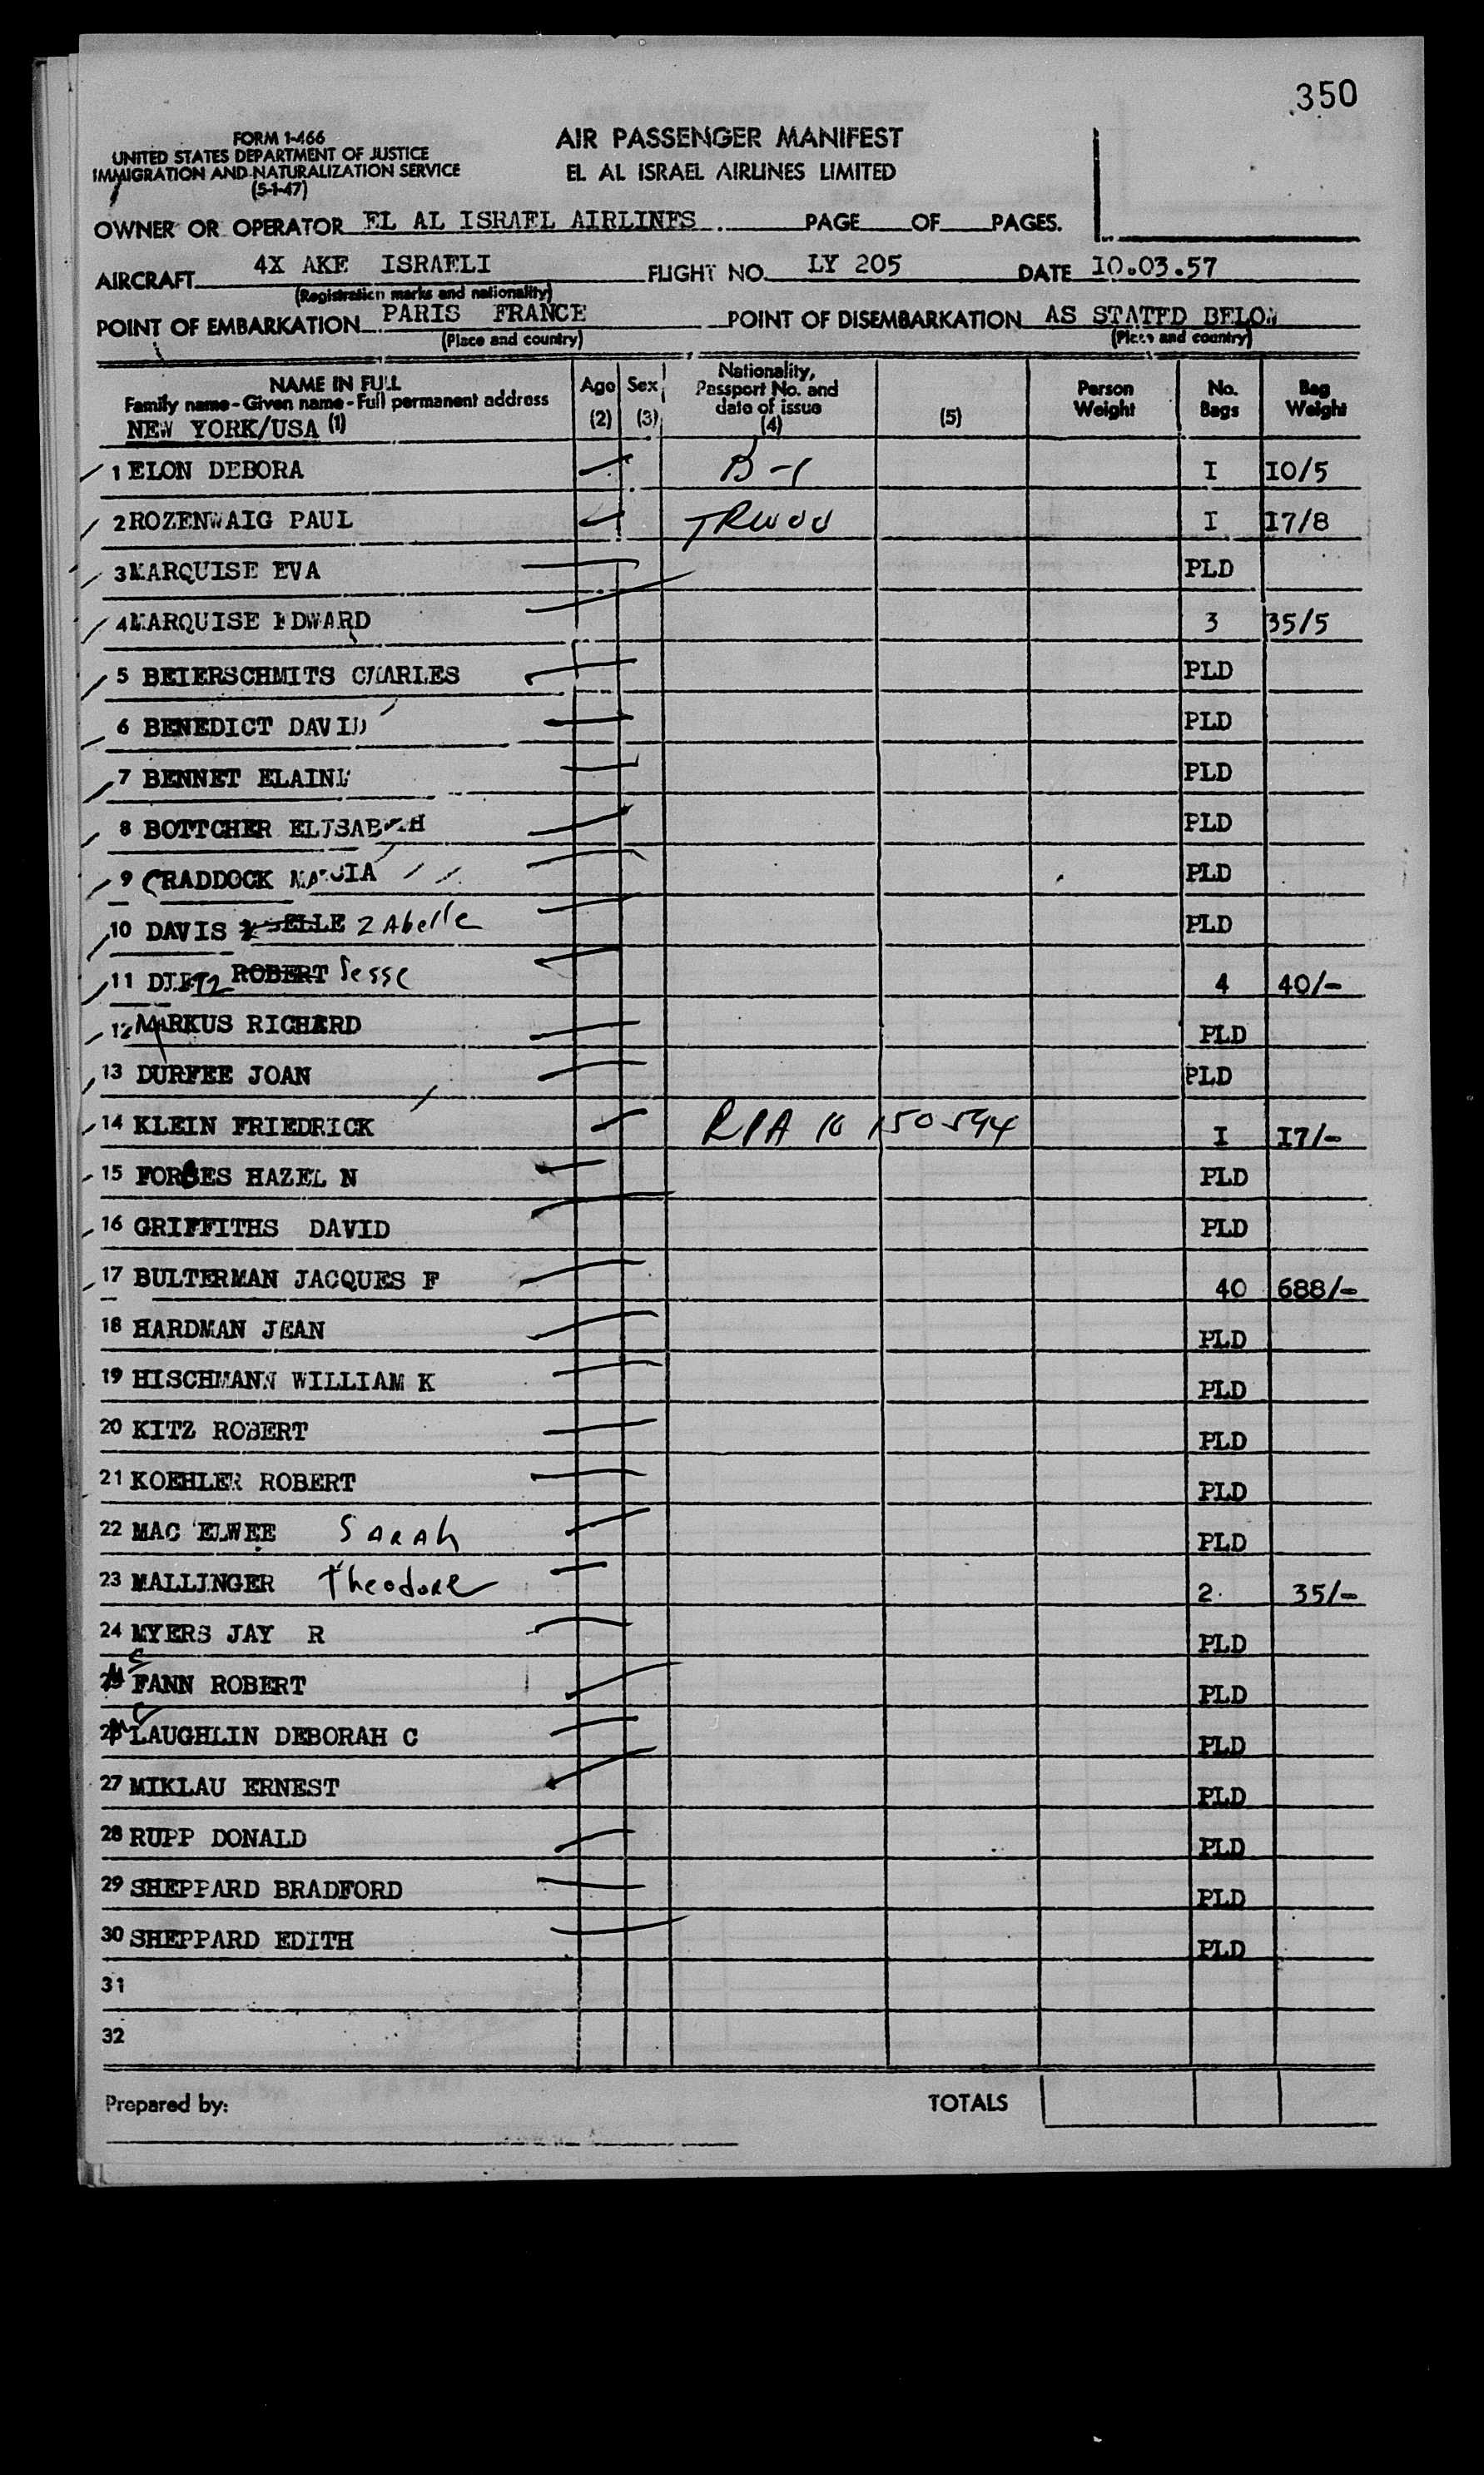 350
FORM I-466
UNITED STATES DEPARTMENT OF JUSTICE
IMMIGRATION AND NATURALIZATION SERVICE
(5-1-47)
AIR PASSENGER MANIFEST
EL AL ISRAEL AIRLINES LIMITED
OWNER OR OPERATOR EL AL ISRAEL AIRLINES PAGE OF PAGES.
AIRCRAFT 4X AKE ISRAELI FLIGHT NO. LY 205 DATE 10.03.57
(Registration marks and nationality)
POINT OF EMBARKATION PARIS FRANCE POINT OF DISEMBARKATION AS STATED BELOW
(Place and country) (Place and country)
NAME IN FULL Age Sex Nationality, Passport No. and date of issue Person Weight No. Bags Bag Weight
Family name - Given name - Full permanent address
NEW YORK/USA (1) (2) (3) (4) (5)
1 ELON DEBORA B-1 I 10/5
2 ROZENWAIG PAUL I 17/8
3 MARQUISE EVA PLD
4 MARQUISE EDWARD 3 35/5
5 BEIERSCHMITS CHARLES PLD
6 BENEDICT DAVID PLD
7 BENNET ELAINE PLD
8 BOTTCHER ELISABETH PLD
9 CRADDOCK MARCIA PLD
10 DAVIS ZABELLE PLD
11 DIETZ ROBERT Jesse 4 40/-
12 MARKUS RICHARD PLD
13 DURFEE JOAN PLD
14 KLEIN FRIEDRICK 150594 I 17/-
15 FORBES HAZEL N PLD
16 GRIFFITHS DAVID PLD
17 BULTERMAN JACQUES F 40 688/-
18 HARDMAN JEAN PLD
19 HISCHMANN WILLIAM K PLD
20 KITZ ROBERT PLD
21 KOEHLER ROBERT PLD
22 MAC ELWEE SARAh PLD
23 MALLINGER Theodore 2 35/-
24 MYERS JAY R PLD
25 Mc FANN ROBERT PLD
26 Mc LAUGHLIN DEBORAH C PLD
27 MIKLAU ERNEST PLD
28 RUPP DONALD PLD
29 SHEPPARD BRADFORD PLD
30 SHEPPARD EDITH PLD
31
32
Prepared by: TOTALS